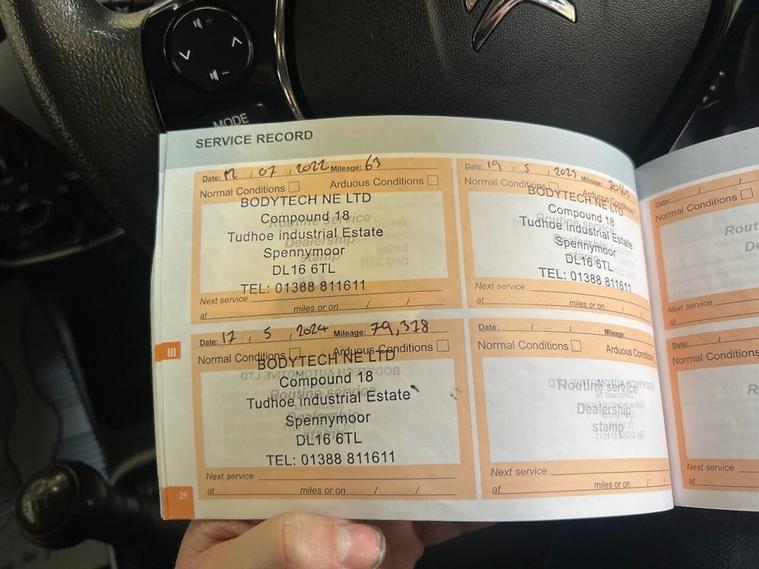 MODE
SERVICE RECORD
Date: 12 , 07 , 2022 Mileage: 63
Normal Conditions Arduous Conditions
Routine service
Dealership
stamp
BODYTECH NE LTD
Compound 18
Tudhoe industrial Estate
Spennymoor
DL16 6TL
TEL: 01388 811611
Next service
at miles or on / /
Date: 19 , 5 , 2023 Mileage:
Normal Conditions Arduous
BODYTECH NE LTD
Compound 18
Tudhoe industrial Estate
Spennymoor
DL16 6TL
TEL: 01388 811611
Next service
at miles or on / /
III
Date: 17 , 5 , 2024 Mileage: 79,328
Normal Conditions Arduous Conditions
Routine service
BODYTECH NE LTD
Compound 18
Tudhoe industrial Estate
Spennymoor
DL16 6TL
TEL: 01388 811611
Next service
at miles or on / /
Date: / / Mileage:
Normal Conditions Arduous Conditions
Routine service
Dealership
stamp
Next service
at miles or on / /
26
Date: / /
Normal Conditions
Rout
De
Next service
at
Date: / /
Normal Conditions
R
Next service
at